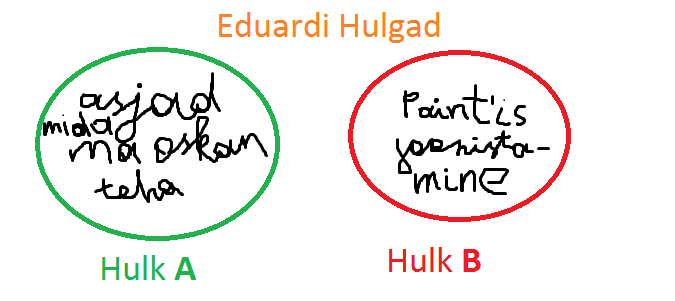 Eduardi Hulgad
asjad
mida
ma oskan
teha
Paint'is
joonista-
mine
Hulk A
Hulk B